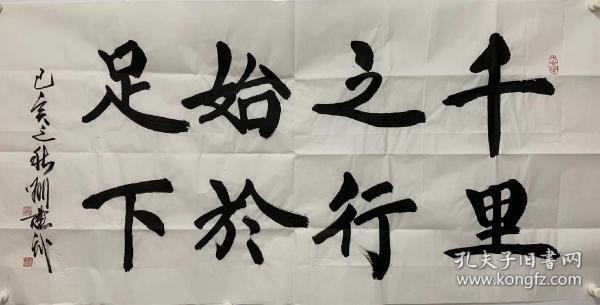 千里
之行
始於
足下
己亥之秋
孔夫子旧书网
www.kongfz.com